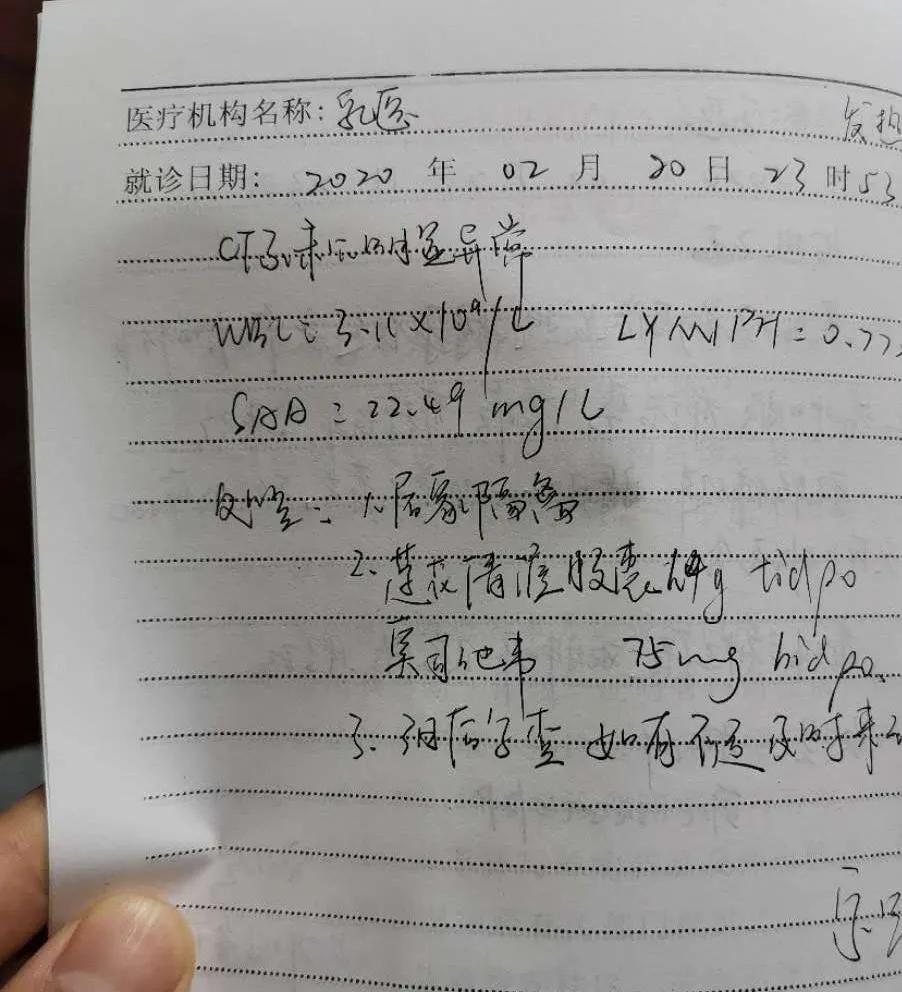 医疗机构名称: 乳医 发热
就诊日期: 2020 年 02 月 20 日 23 时 53
CT示未见明显异常
WBC: 3.11×10⁹/L LYMPH: 0.77
SAA: 22.49 mg/L
处理: 1. 居家隔离
2. 莲花清瘟胶囊 4g tid po
奥司他韦 75mg bid po
3. 3日后复查 如有不适及时来